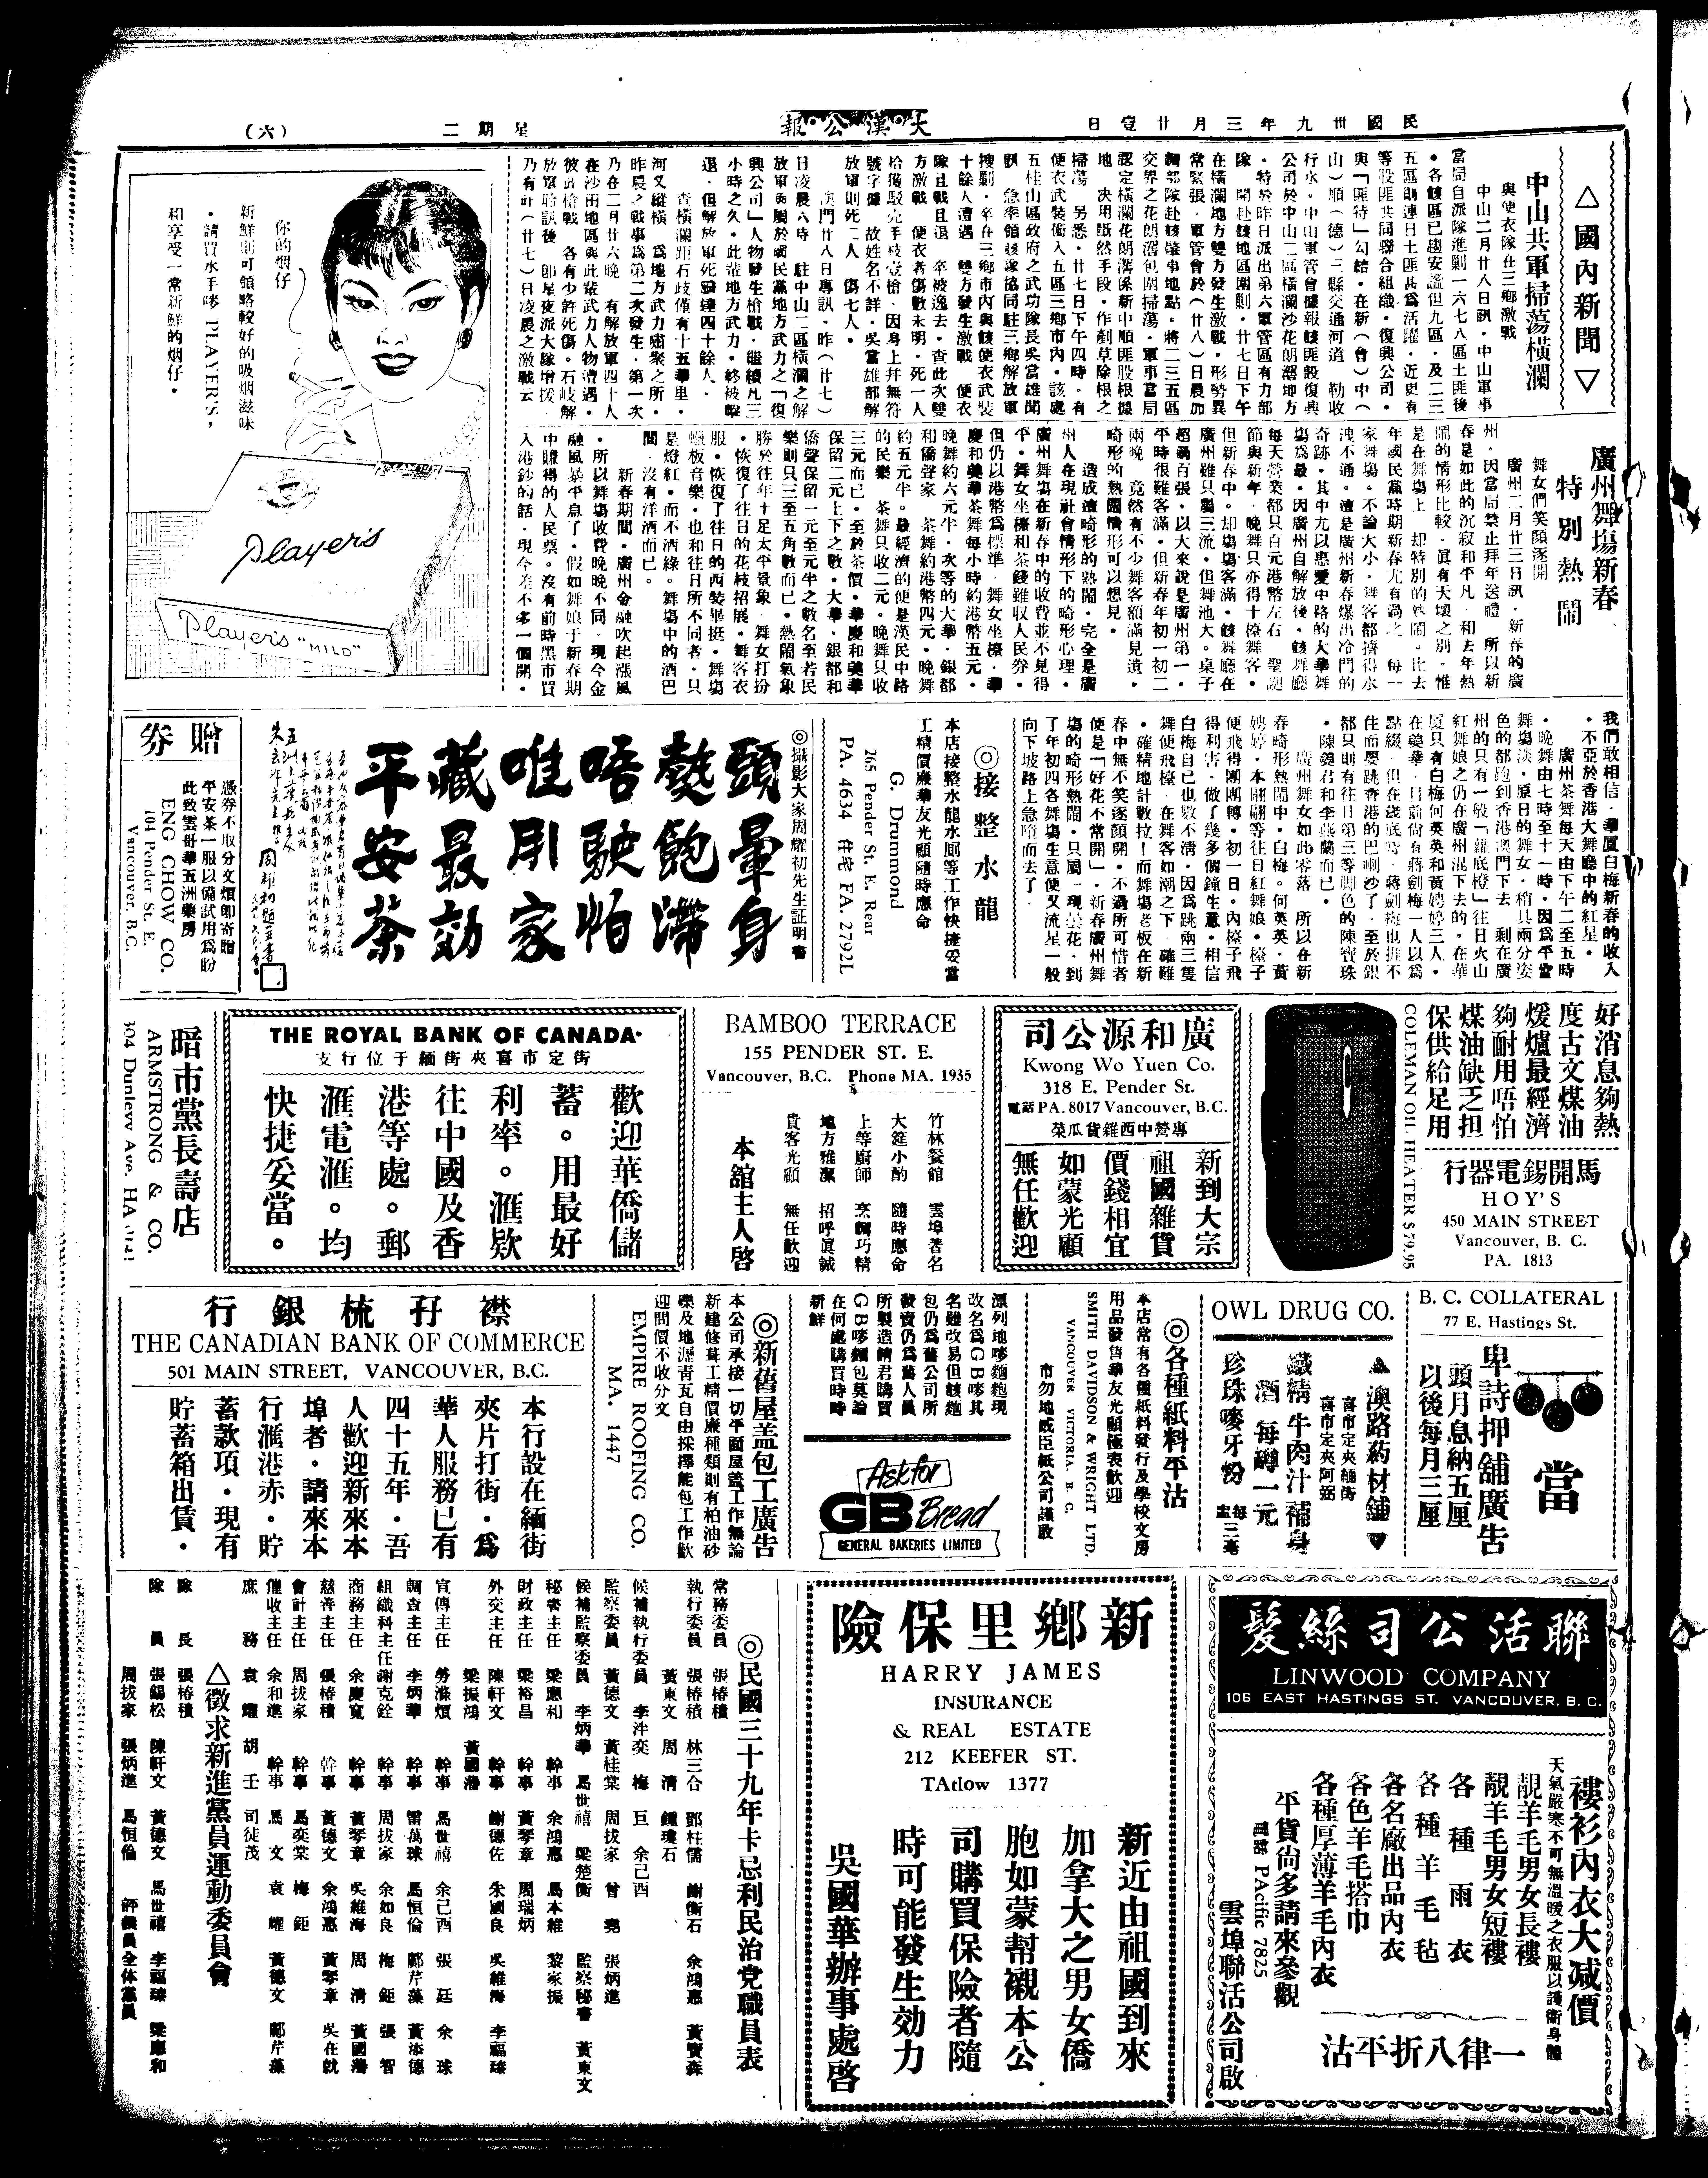 民國卅九年三月廿壹日
大漢公報
星期二
(六)
△國內新聞▽
中山共軍掃蕩橫瀾
與便衣隊在三鄉激戰
中山二月廿八日訊・中山軍事
當局自派隊進剿一六七八區土匪後
・各該區已趨安謐但九區・及二三
五區則連日土匪甚為活躍・近更有
等股匪共同聯合組織・復興公司・
與「匪特」勾結・在新(會)中(
山)順(德)三縣交通河道 勒收
行水・中山軍管會據報該匪假復興
公司於中山二區橫瀾沙花朗滘地方
・特於昨日派出第六軍管區有力部
隊 開赴該地區圍剿・廿七日下午
在橫瀾地方雙方發生激戰・形勢異
常緊張・軍管會於(廿八)日晨加
調部隊赴該肇事地點・將二三五區
交界之花朗滘包圍掃蕩・軍事當局
認定橫瀾花朗滘係新中順匪股根據
地 決用斷然手段・作剷草除根之
掃蕩 另悉・廿七日下午四時・有
便衣武裝衝入五區三鄉市內・該處
五桂山區政府之武功隊長吳當雄聞
訊 急率領該隊協同駐三鄉解放軍
搜剿・卒在三鄉市內與該便衣武裝
十餘人遭遇 雙方發生激戰 便衣
隊且戰且退 卒被逸去・查此次雙
方激戰・便衣者傷數未明・死一人
拾獲駁壳手枝壹槍・因身上并無符
號字據 故姓名不詳・吳當雄部解
放軍則死二人 傷七人・
澳門廿八日專訊・昨(廿七)
日凌晨六時 駐中山二區橫瀾之解
放軍與屬於國民黨地方武力之「復
興公司」人物發生槍戰・繼續凡三
小時之久・此輩地方武力・終被擊
退・但解放軍死傷達四十餘人・
查橫瀾距石歧僅有十五華里・
河又縱橫 為地方武力嘯聚之所・
昨晨之戰事為第二次發生・第一次
乃在二月廿六晚 有解放軍四十人
在沙田地區與此輩武力人物遭遇・
彼此槍戰 各有少許死傷。石歧解
放軍聆訊後 即星夜派大隊增援・
乃有昨(廿七)日凌晨之激戰云
廣州舞場新春
特別熱鬧
舞女們笑顏逐開
廣州二月廿三日訊・新春的廣
州・因當局禁止拜年送禮 所以新
春是如此的沉寂和平凡 和去年熱
鬧的情形比較・真有天壤之別・惟
是在舞場上 却特別的熱鬧・比去
年國民黨時期新春尤有過之 每一
家舞場・不論大小・舞客都擠得水
洩不通。這是廣州新春爆出冷門的
奇跡・其中尤以惠愛中路的大華舞
場為最・因廣州自解放後・該舞廳
每天營業都只百元港幣左右 聖誕
節與新年・晚舞只亦得十檯舞客・
但新春中。却場場客滿・該舞廳在
廣州雖只屬三流・但舞池大。桌子
超過百張・以大來說是廣州第一・
平時很難客滿・但新春年初一初二
兩晚 竟然有不少舞客額滿見遺・
畸形的熱鬧情形可以想見・
造成這畸形的熱鬧・完全是廣
州人在現社會情形下的畸形心理・
廣州舞場在新春中的收費並不見得
平・舞女坐檯和茶錢雖收人民券・
但仍以港幣為標準・舞女坐檯・華
慶和美華茶舞每小時約港幣五元・
晚舞約六元半・次等的大華・銀都
和僑聲家 茶舞約港幣四元・晚舞
約五元半。最經濟的便是漢民中路
的民樂 茶舞只收二元。晚舞只收
三元而已・至於茶價・華慶和美華
保留二元上下之數・大華・銀都和
僑聲保留一元至元半之數名至若民
樂則只三至五角數而已・熱鬧氣象
勝於往年十足太平景象 舞女打扮
・恢復了往日的花枝招展・舞客衣
服・恢復了往日的西裝畢挺・舞場
蠟板音樂・也和往日所不同者・只
是燈紅・而不酒綠。舞場中的酒巴
間・沒有洋酒而已。
新春期間・廣州金融吹起漲風
・所以舞場收費晚晚不同・現今金
融風暴平息了・假如舞娘于新春期
中賺得的人民票。沒有前時黑市買
入港鈔的話・現今差不多一個開・
我們敢相信・華厦白梅新春的收入
・不亞於香港大舞廳中的紅星・
廣州茶舞每天由下午二至五時
・晚舞由七時至十一時・因為平常
舞場淡・原日的舞女・稍具兩分姿
色的都跑到香港澳門下去 剩在廣
州的只有一般「籮底橙」往日火山
紅舞娘之仍在廣州混下去的・在華
厦只有白梅何英英和黃娉婷三人・
在美華・目前尚有蔣劍梅一人以為
點綴・但在淺底時・蔣劍梅也捱不
住而要跳香港的巴喇沙了・至於銀
都只則有往日第三等脚色的陳寶珠
・陳義君和李燕蘭而已・
廣州舞女如此零落 所以在新
春畸形熱鬧中・白梅。何英英・黃
娉婷・本翩翩等往日紅舞娘・檯子
便飛得團團轉・初一日。內檯子飛
得利害・做了幾多個鐘生意・相信
白梅自已也數不清・因為跳兩三隻
舞便飛檯・在舞客如潮之下・確難
・確精地計數拉！而舞場老板在新
春中無不笑逐顏開・不過所可惜者
便是「好花不常開」・新春廣州舞
場的畸形熱鬧・只屬一現曇花・到
了年初四各舞場生意便又流星一般
向下坡路上急墮而去了・
你的烟仔
新鮮則可領略較好的吸烟滋味
・請買水手嘜 PLAYERS，
和享受一常新鮮的烟仔・
Player's
Player's "MILD"
◎接整水龍
本店接整水龍水厠等工作快捷妥當
工精價廉華友光顧隨時應命
G. Drummond
265 Pender St. E. Rear
PA. 4634 住宅 FA. 2792L
◎攝影大家周耀初先生証明書
頭暈身
熱飽滯
唔駛怕
唯用家
藏最効
平安茶
贈券
憑券不取分文煩即寄贈
平安茶一服以備試用為盼
此致雲哥華五洲藥房
ENG CHOW CO.
104 Pender St. E.
Vancouver, B.C.
好消息夠熱
度古文煤油
煖爐最經濟
夠耐用唔怕
煤油缺乏担
保供給足用
COLEMAN OIL HEATER $79.95
馬開錫電器行
HOY'S
450 MAIN STREET
Vancouver, B. C.
PA. 1813
廣和源公司
Kwong Wo Yuen Co.
318 E. Pender St.
電話PA. 8017 Vancouver, B.C.
專營中西雜貨瓜菜
新到大宗
祖國雜貨
價錢相宜
如蒙光顧
無任歡迎
BAMBOO TERRACE
155 PENDER ST. E.
Vancouver, B.C. Phone MA. 1935
竹林餐館 雲埠著名
大筵小酌 隨時應命
上等廚師 烹調巧精
地方雅潔 招呼真誠
貴客光顧 無任歡迎
本舘主人啓
THE ROYAL BANK OF CANADA
支行位于緬街夾喜市定街
歡迎華僑儲
蓄。用最好
利率。滙欵
往中國及香
港等處。郵
滙電滙。均
快捷妥當。
暗市黨長壽店
ARMSTRONG & CO.
304 Dunlevy Ave. HA
B. C. COLLATERAL
77 E. Hastings St.
當
卑詩押舖廣告
頭月息納五厘
以後每月三厘
OWL DRUG CO.
▲澳路葯材舖▼
喜市定夾緬街
喜市定夾阿弼
鐵精牛肉汁補身
酒 每罇一元
珍珠嘜牙粉 每盅三毫
◎各種紙料平沽
本店常有各種紙料發行及學校文房
用品發售華友光顧極表歡迎
SMITH DAVIDSON & WRIGHT LTD.
VANCOUVER VICTORIA. B. C.
市勿地威臣紙公司謹啟
漂列地嘜麵飽現
改名為GB嘜其
名雖改易但該麵
包仍為舊公司所
發賣仍為舊人員
所製造請君購買
GB嘜麵包莫論
在何處購買時時
新鮮
Ask for
GB Bread
GENERAL BAKERIES LIMITED
◎新舊屋盖包工廣告
本公司承接一切平面屋盖工作無論
新建修葺工精價廉種類則有柏油砂
礫及地瀝青瓦自由採擇能包工作歡
迎問價不收分文
EMPIRE ROOFING CO.
MA. 1447
襟孖梳銀行
THE CANADIAN BANK OF COMMERCE
501 MAIN STREET, VANCOUVER, B.C.
本行設在緬街
夾片打街・為
華人服務已有
四十五年・吾
人歡迎新來本
埠者・請來本
行滙港赤・貯
蓄款項・現有
貯蓄箱出賃・
聯活公司絲髮
LINWOOD COMPANY
106 EAST HASTINGS ST. VANCOUVER, B. C.
褸衫內衣大減價
天氣嚴寒不可無溫暖之衣服以護衛身體
靚羊毛男女長褸
靚羊毛男女短褸
各種雨衣
各種羊毛毡
各名廠出品內衣
各色羊毛搭巾
各種厚薄羊毛內衣
一律八折平沽
平貨尚多請來參觀
電話 PAcific 7825
雲埠聯活公司啟
新鄉里保險
HARRY JAMES
INSURANCE
& REAL ESTATE
212 KEEFER ST.
TAtlow 1377
新近由祖國到來
加拿大之男女僑
胞如蒙幫襯本公
司購買保險者隨
時可能發生効力
吳國華辦事處啓
◎民國三十九年卡忌利民治党職員表
常務委員 張椿積
執行委員 張椿積 林三合 鄧柱儒 謝衛石 余鴻惠 黃寶森
黃東文 周清 鍾瓊石
候補執行委員 李泮奕 梅巨 余己酉
監察委員 黃德文 黃桂棠 周拔家 曾堯 張炳進
候補監察委員 李炳華 馬世禧 梁楚衡 監察秘書 黃東文
秘書主任 梁應和 幹事 余鴻惠 馬本維 黎家振
財政主任 梁裕昌 幹事 黃琴章 周瑞炳
外交主任 陳軒文 幹事 謝德佐 朱國良 吳維海 李福臻
梁振鴻 黃國濟
宣傳主任 勞滌煩 幹事 馬世禧 余己酉 張廷 余球
調查主任 李炳華 幹事 雷萬球 馬恒倫 鄺芹藻 黃添德
組織科主任 謝克銓 幹事 周拔家 余如良 梅鉅 張智
商務主任 余慶寬 幹事 黃琴章 吳維海 周清 黃國濟
慈善主任 張椿積 幹事 黃德文 余鴻惠 黃琴章 吳在就
會計主任 周拔家 幹事 馬奕棠 梅鉅
催收主任 余和進 幹事 馬文 袁耀 黃德文 鄺芹藻
庶務 袁耀 胡壬 司徒茂
△徵求新進黨員運動委員會
隊長 張椿積
隊員 張錫松 陳軒文 黃德文 馬世禧 李福臻 梁應和
周拔家 張炳進 馬恒倫 評議員全体黨員